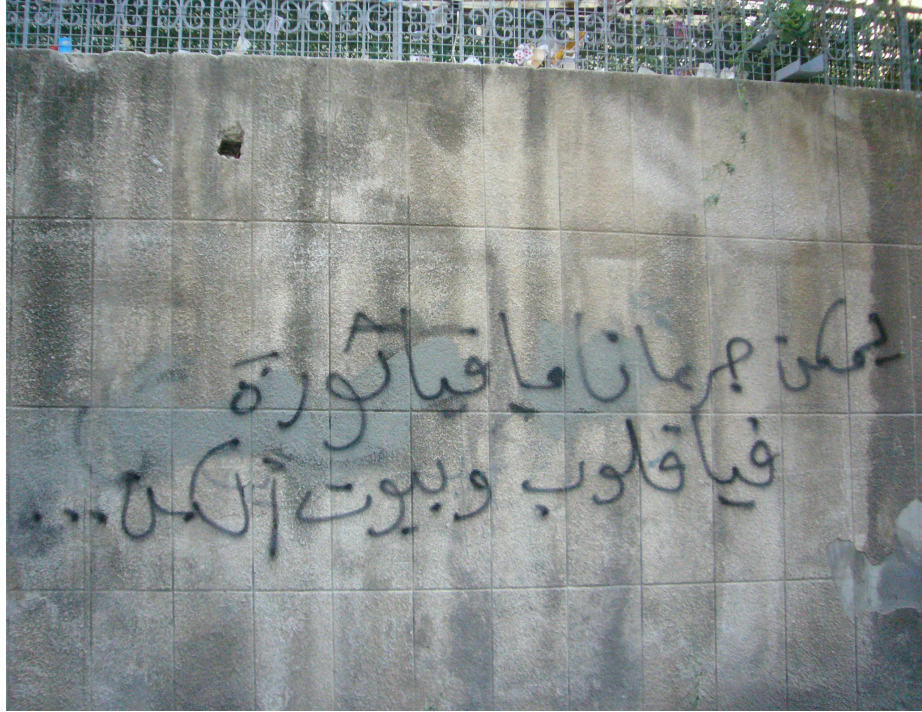 يمكن جرمانا ما فيا ثورة
فيا قلوب وبيوت إلكن...